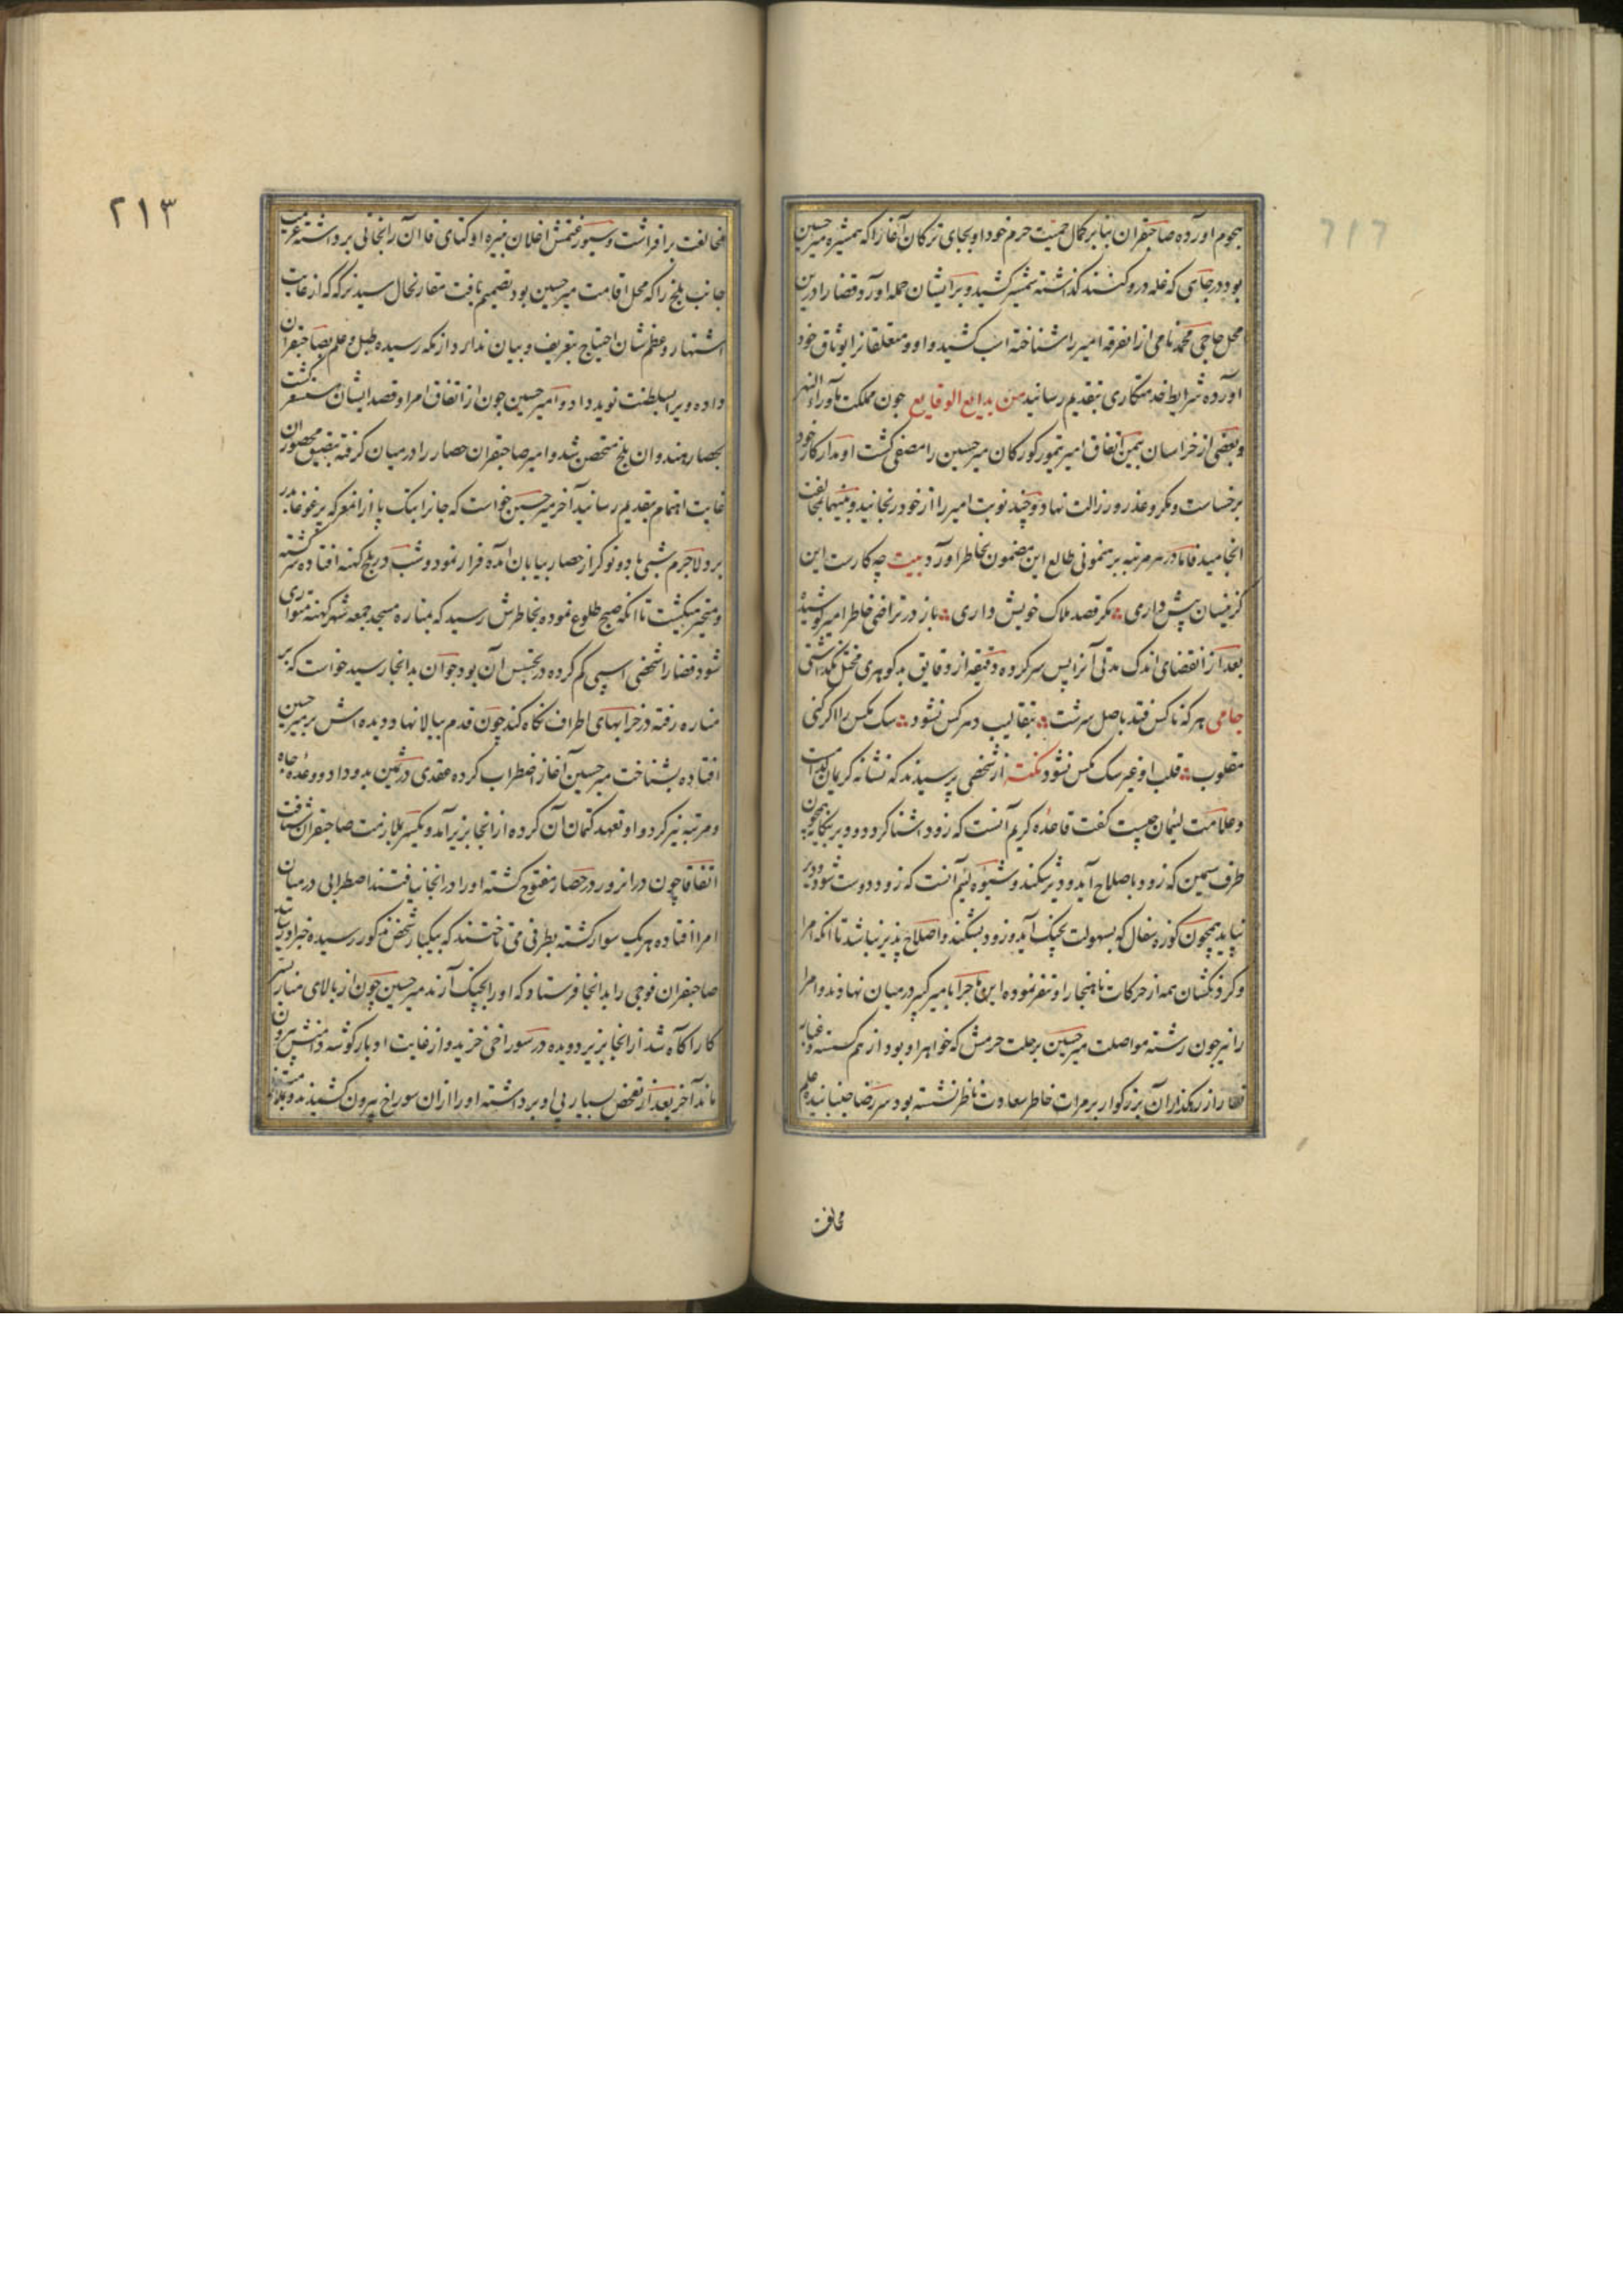 هجوم اورده صاحبقران بنابر کمال حمیت حرم خود اولجای ترکان آغا را که همشیره میر حسین
بود در جایی که غله درو کنند گذاشته شمشیر کشید و بر ایشان حمله آورد قضا را درین
محل حاجی محمد نامی ازانفرقه امیر را شناخته اب کشید و او و متعلقانرا بوثاق خود
آورده شرایط خدمتکاری بتقدیم رسانید من بدایع الوقایع چون مملکت ماوراء النهر
و بعضی از خراسان بیمن اتفاق امیر تیمور کورکان میر حسین را مصفی کشت او مدار کار خود
بر خساست و مکر و غدر و رزالت نهاد و چند نوبت امیر را از خود رنجانید و بینهما بمخالفت
انجامید فاما در هر مرتبه برهنمونی طالع این مضمون بخاطر اورد بیت چه کارست این
کزینسان پیش داری مکر قصد هلاک خویش داری باز در تراضی خاطر امیر کوشید
بعد از انقضای اندک مدتی آنرا پس سر کرده دقیقه از دقایق بد کوهری مختل نکذاشتی
جامی هر که ناکس فتد باصل سرشت بتقالیب دهر کس نشود سک مکس را اکر کنی
مقلوب قلب او غیر سک مکس نشود نکته از شخصی پرسیدند که نشانه کریمان کدامست
و علامت لئیمان چیست کفت قاعده کریم آنست که زود اشنا کردد و دیر بیکانه همچون
ظرف سیمین که زود باصلاح آید و دیر شکند و شیوه لئیم آنست که زود دوست شود و دیر
نپاید همچون کوزه سفال که بسهولت بچنک آید و زود بشکند و اصلاح پذیر نباشد تا انکه امرا
و کردنکشان همه از حرکات ناهنجار او تنفر نموده این ماجرا با میر کبیر در میان نهادند و امرا
را نیز چون رشته مواصلت میر حسین برحلت حرمش که خواهر او بود از هم کسسته و غبار
قضا را از رهکذر آن بزرکوار بر مرات خاطر سعادت ناظر نشسته بود سر رضا جنبانیده علم
مخالفت
۲۱۳
مخالفت برافراشت و سیورغتمش اغلان نبیره اوکتای قاآن را بخانی برداشته عزیمت
جانب بلخ را که محل اقامت میر حسین بود تصمیم یافت مقارنحال سید برکه که از غایت
اشتهار و عظم شان احتیاج بتعریف و بیان ندارد از مکه رسیده طبل و علم بصاحبقران
داده ویرا بسلطنت نوید داد و امیر حسین چون از اتفاق امرا و قصد ایشان مستشعر کشت
بحصار هندوان بلخ متحصن شد و امیر صاحبقران حصار را در میان کرفته بتضییق محصوران
غایت اهتمام بتقدیم رسانید آخر میر حسین خواست که جانرا بتک پا ازانمعرکه پرغوغا بدر
برد لاجرم شبی با دو نوکر از حصار بیابان امده فرار نمود و شب در بلخ کهنه افتاده سرکشته
و متحیر میکشت تا انکه صبح طلوع نموده بخاطرش رسید که بمناره مسجد جمعه شهر کهنه متواری
شود قضا را شخصی اسپی کم کرده در تجسس آن بود چو آن بدانجا رسید خواست که بر
مناره رفته در خرابهای اطراف نکاه کند چون قدم ببالا نهاد دیده اش بر میر حسین
افتاده بشناخت میر حسین آغاز اضطراب کرده عقدی در ثمین بدو داد و وعده جاه
و مرتبه نیز کرد و او تعهد کتمان آن کرده از انجا بزیر آمد و یکسر بملازمت صاحبقران شتافت
اتفاقا چون درانروز در حصار مفتوح کشته او را در انجا نیافتند اضطرابی در میان
امرا افتاده هر یک سوار کشته بطرفی می تاختند که بیکبار شخص مذکور رسیده خبر اورسانید
صاحبقران فوجی را بدانجا فرستاد که او را بچنک آرند میر حسین چون از بالای منار بسر
کار آکاه شد از انجا بزیر دویده در سوراخی خزید و از غایت ادبار کوشه دامنش بیرون
ماند آخر بعد از تفحص بسیار پی او برداشته او را ازان سوراخ بیرون کشیدند و